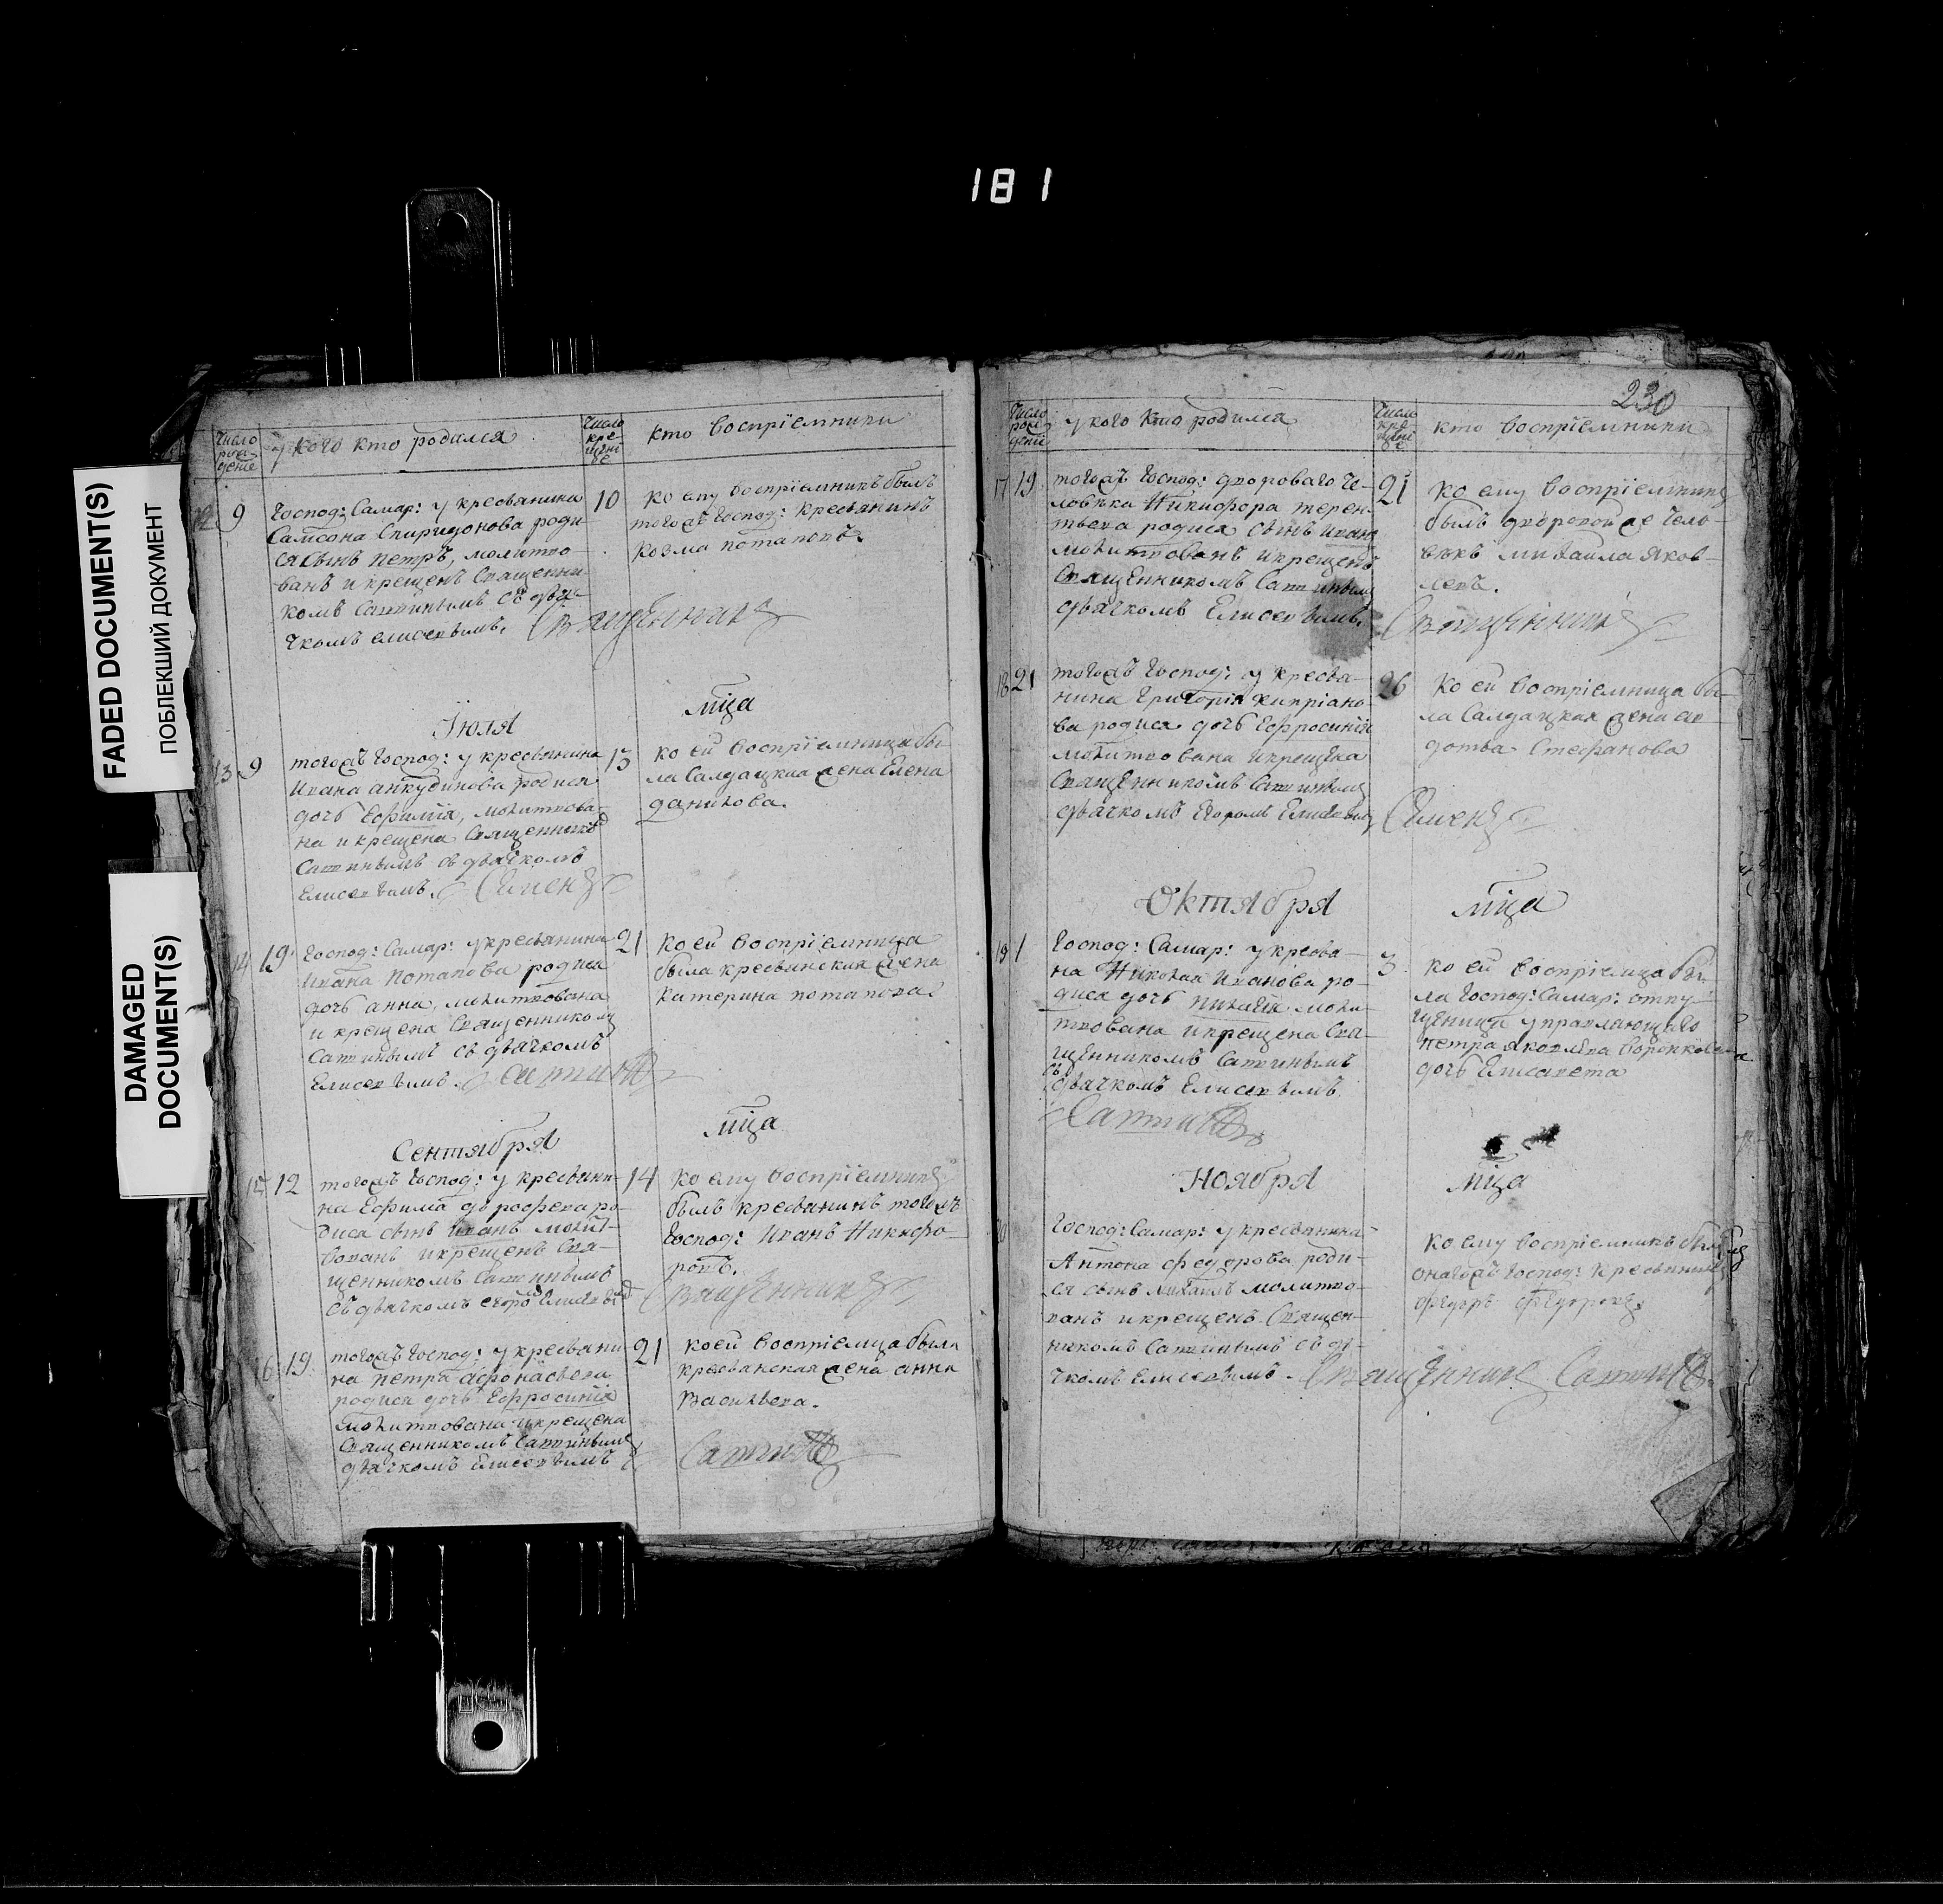 181
FADED DOCUMENT(S)
ПОБЛЕКШИЙ ДОКУМЕНТ
DAMAGED
DOCUMENT(S)
Число рождение
у кого кто родился
Число крещение
кто воспріемники
12 9
Господ: Самар: у кресьянина
Самсона Спиридонова роди-
ся сынъ Петръ, молитво-
ванъ и крещенъ Священни-
комъ Сатинымъ съ дья-
чкомъ елисеевымъ.
10
ко ему воспріемникъ былъ
тогожъ Господ: кресьянинъ
козма потаповъ.
Священникъ
Іюля
мца
13 9
тогожъ Господ: у кресьянина
Ивана анкудинова родися
дочь Ефимія, молитвова-
на и крещена Священником
Сатинымъ съ дьячкомъ
Елисеевымъ.
Симеонъ
13
ко ей воспріемница бы-
ла Салдацкая жена Елена
данилова.
14 19
Господ: Самар: у кресьянина
Ивана Потапова родися
дочь анна, молитвована
и крещена Священникомъ
Сатинымъ съ дьячкомъ
Елисеевымъ.
Сатинъ
21
ко ей воспріемница
была кресьянская жена
катерина потапова.
Сентября
мца
15 12
тогожъ Господ: у кресьяни-
на Ефима дорофеева ро-
дися сынъ Иванъ молит-
вованъ и крещенъ Свя-
щенникомъ Сатинымъ
съ дьячкомъ егоромъ Елисеевым
14
ко ему воспріемникъ
былъ кресьянинъ тогожъ
Господ: Иванъ Никифо-
ровъ.
Священникъ
16 19
тогожъ Господ: у кресьяни-
на Петра афонасьева
родися дочь Ефросинія
молитвована и крещена
Священникомъ Сатинымъ
дьячкомъ Елисеевымъ
21
ко ей воспріемица была
кресьянская жена анна
Васильева.
Сатинъ
230
Число рождение
у кого кто родился
Число крещение
кто воспріемники
17 19
тогожъ Господ: двороваго че-
ловѣка Никифора терен-
тьева родися сынъ Иванъ
молитвованъ и крещенъ
Священникомъ Сатинымъ
дьячкомъ Елисеевымъ.
21
ко ему воспріемникъ
былъ дворовой же чело-
вѣкъ михаила яков-
левъ.
Священникъ
18 21
тогожъ Господ: у кресья-
нина Григорія Кипріано-
ва родися дочь Ефросинія
молитвована и крещена
Священникомъ Сатинымъ
дьячкомъ Егоромъ Елисеевым
26
ко ей воспріемница бы-
ла Салдацкая жена ав-
дотья Стефанова
Симеонъ
Октября
мца
19 1
Господ: Самар: у кресья-
на Николая Иванова ро-
дися дочь пилагія моли-
твована и крещена Свя-
щенникомъ Сатинымъ
съ дьячкомъ Елисеевымъ
Сатинъ
3
ко ей воспріемица бы-
ла Господ: Самар: отпу-
щеници управляющаго
петра яковлева
дочь Елисавета
Ноября
мца
Господ: Самар: у кресьянина
Антона федорова роди-
ся сынъ михаилъ молитво-
ванъ и крещенъ Священ-
никомъ Сатинымъ съ дья-
чкомъ Елисеевымъ.
ко ему воспріемникъ былъ
онагожъ Господ: кресьянинъ
федоръ федоровъ.
Священникъ Сатинъ